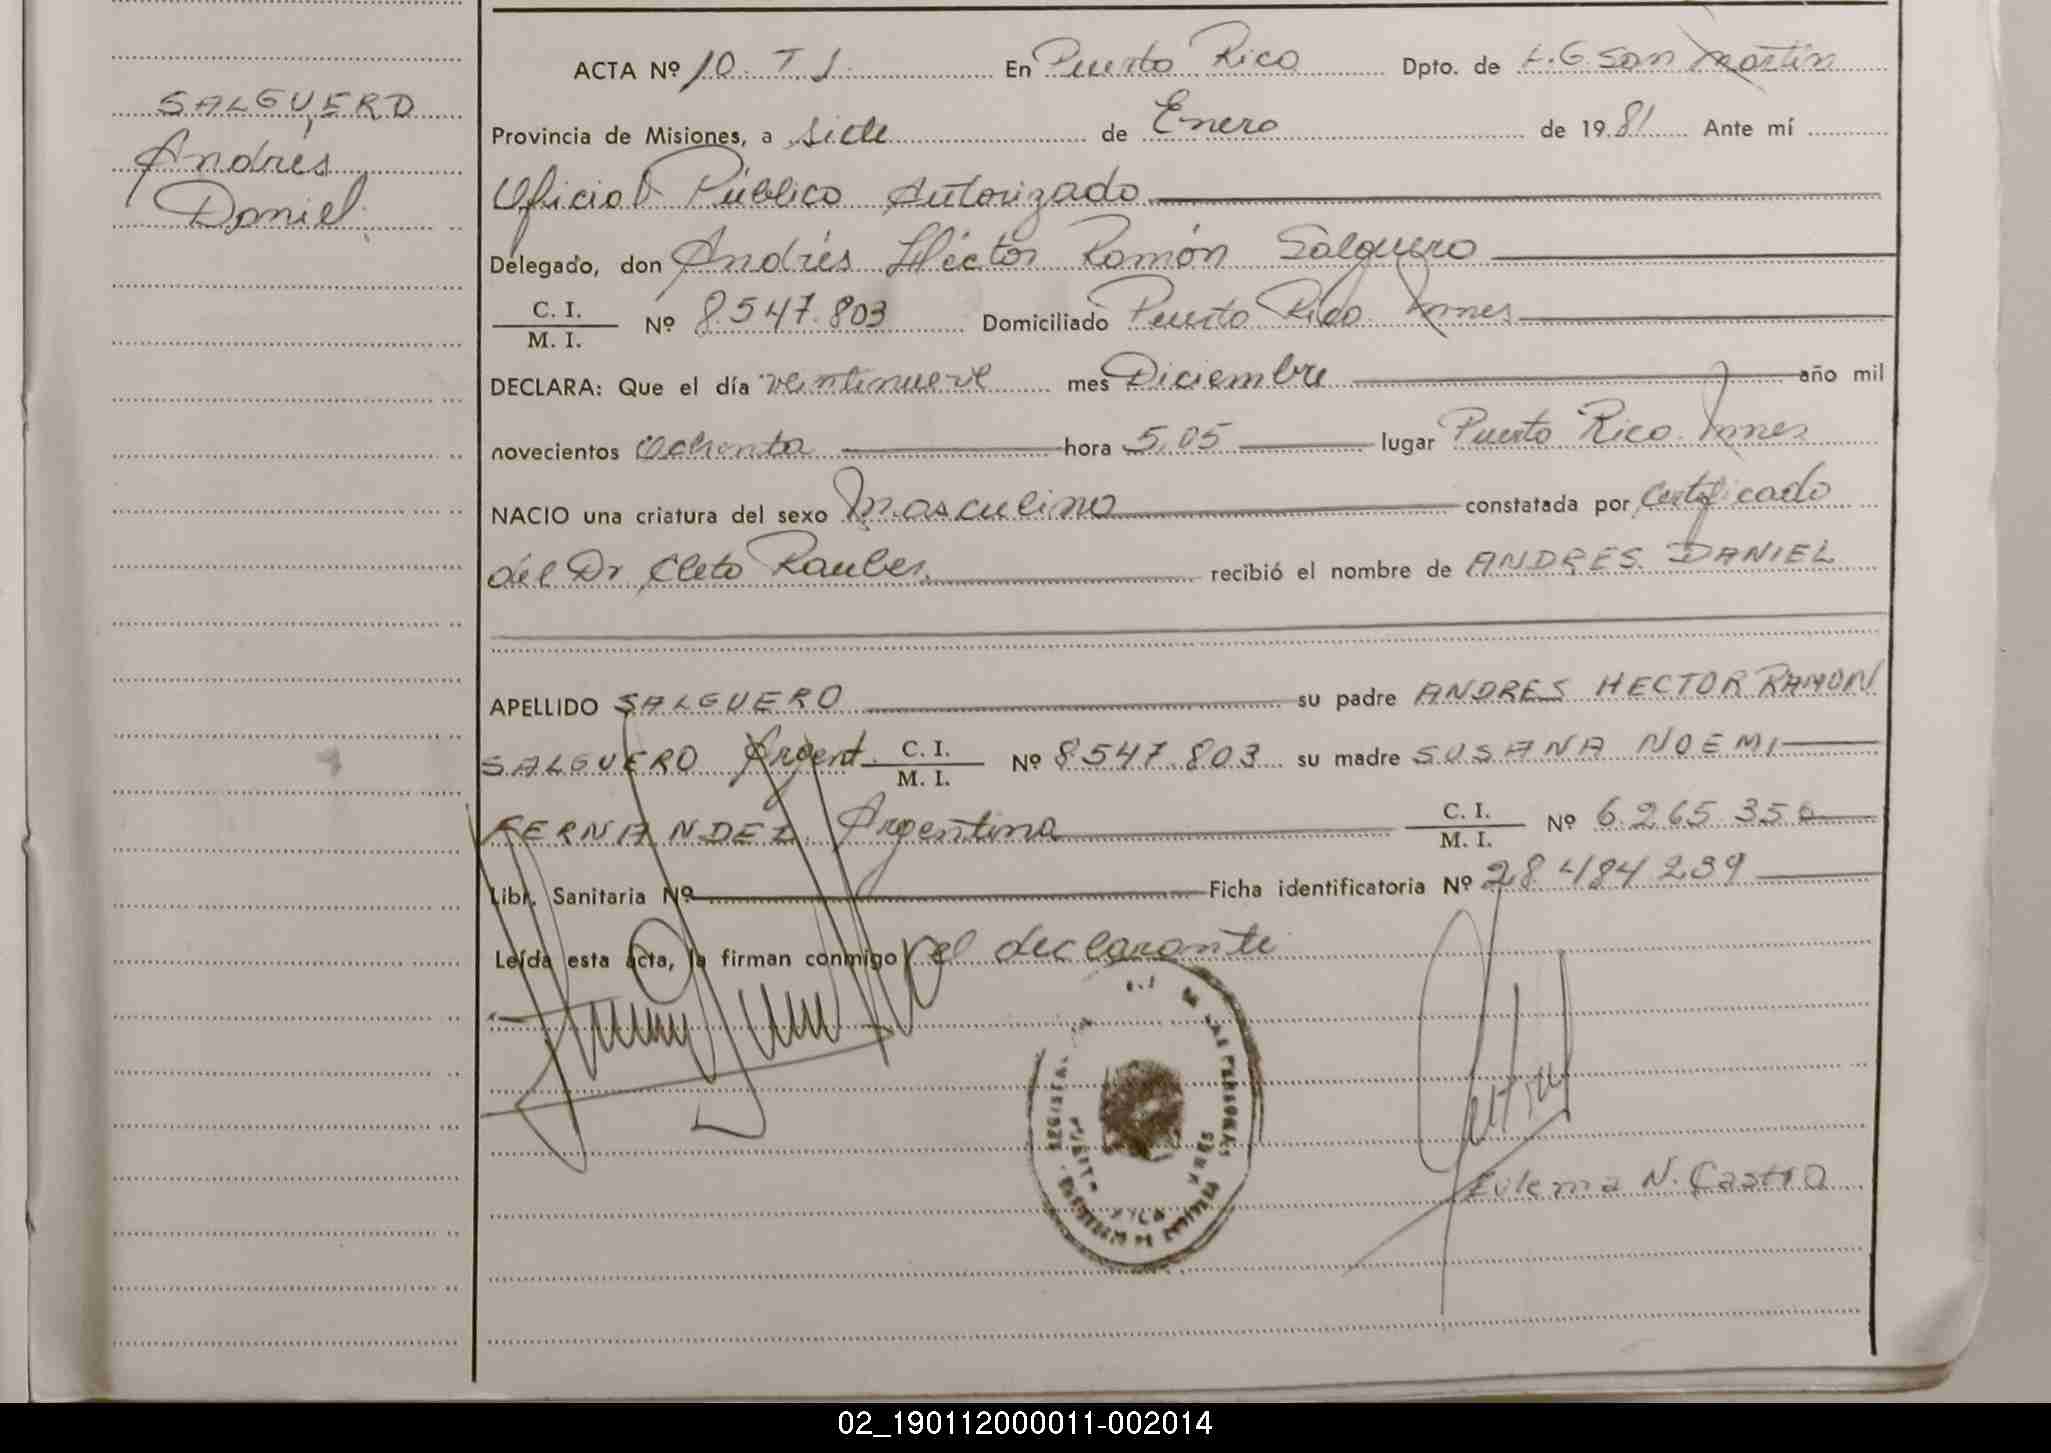 SALGUERO
Andrés
Daniel
ACTA Nº 10. T I. En Puerto Rico Dpto. de L.G. San Martín
Provincia de Misiones, a siete de Enero de 1981 Ante mí
Oficial Público Autorizado
Delegado, don Andrés Héctor Ramón Salguero
C. I.
M. I. Nº 8.547.803 Domiciliado Puerto Rico Mnes
DECLARA: Que el día veintinueve mes Diciembre año mil
novecientos ochenta hora 5,05 lugar Puerto Rico. Mnes
NACIO una criatura del sexo Masculino constatada por Certificado
del Dr Cleto Rauber. recibió el nombre de ANDRES DANIEL
APELLIDO SALGUERO su padre ANDRES HECTOR RAMON
SALGUERO Argent. C. I.
M. I. Nº 8547.803 su madre SUSANA NOEMI
FERNANDEZ. Argentina C. I.
M. I. Nº 6.265.356
Libr. Sanitaria Nº Ficha identificatoria Nº 28.484.239
Leída esta acta, la firman conmigo el declarante
DE LAS PERSONAS
Eulema N. Castro
02_190112000011-002014